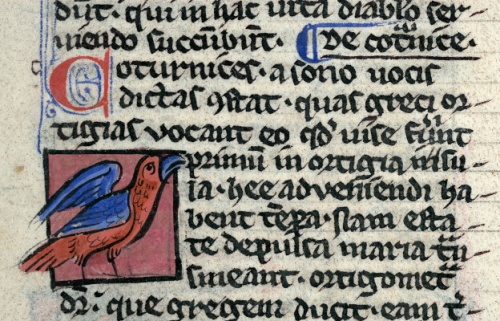 dūt. qui in hac uita diablo ser-
uiendo succūbunt. De coturnice.
Coturnices. a sono uocis
dictas 9stat. quas greci or-
tigias vocant eo qđ uise sūnt
primū in ortigia insu-
la. hee adueniendi ha-
bent tēpa. nam esta-
te depulsa maria trā-
smeant. ortigomet̄
dr̄. que gregem ducit. eam t̄-